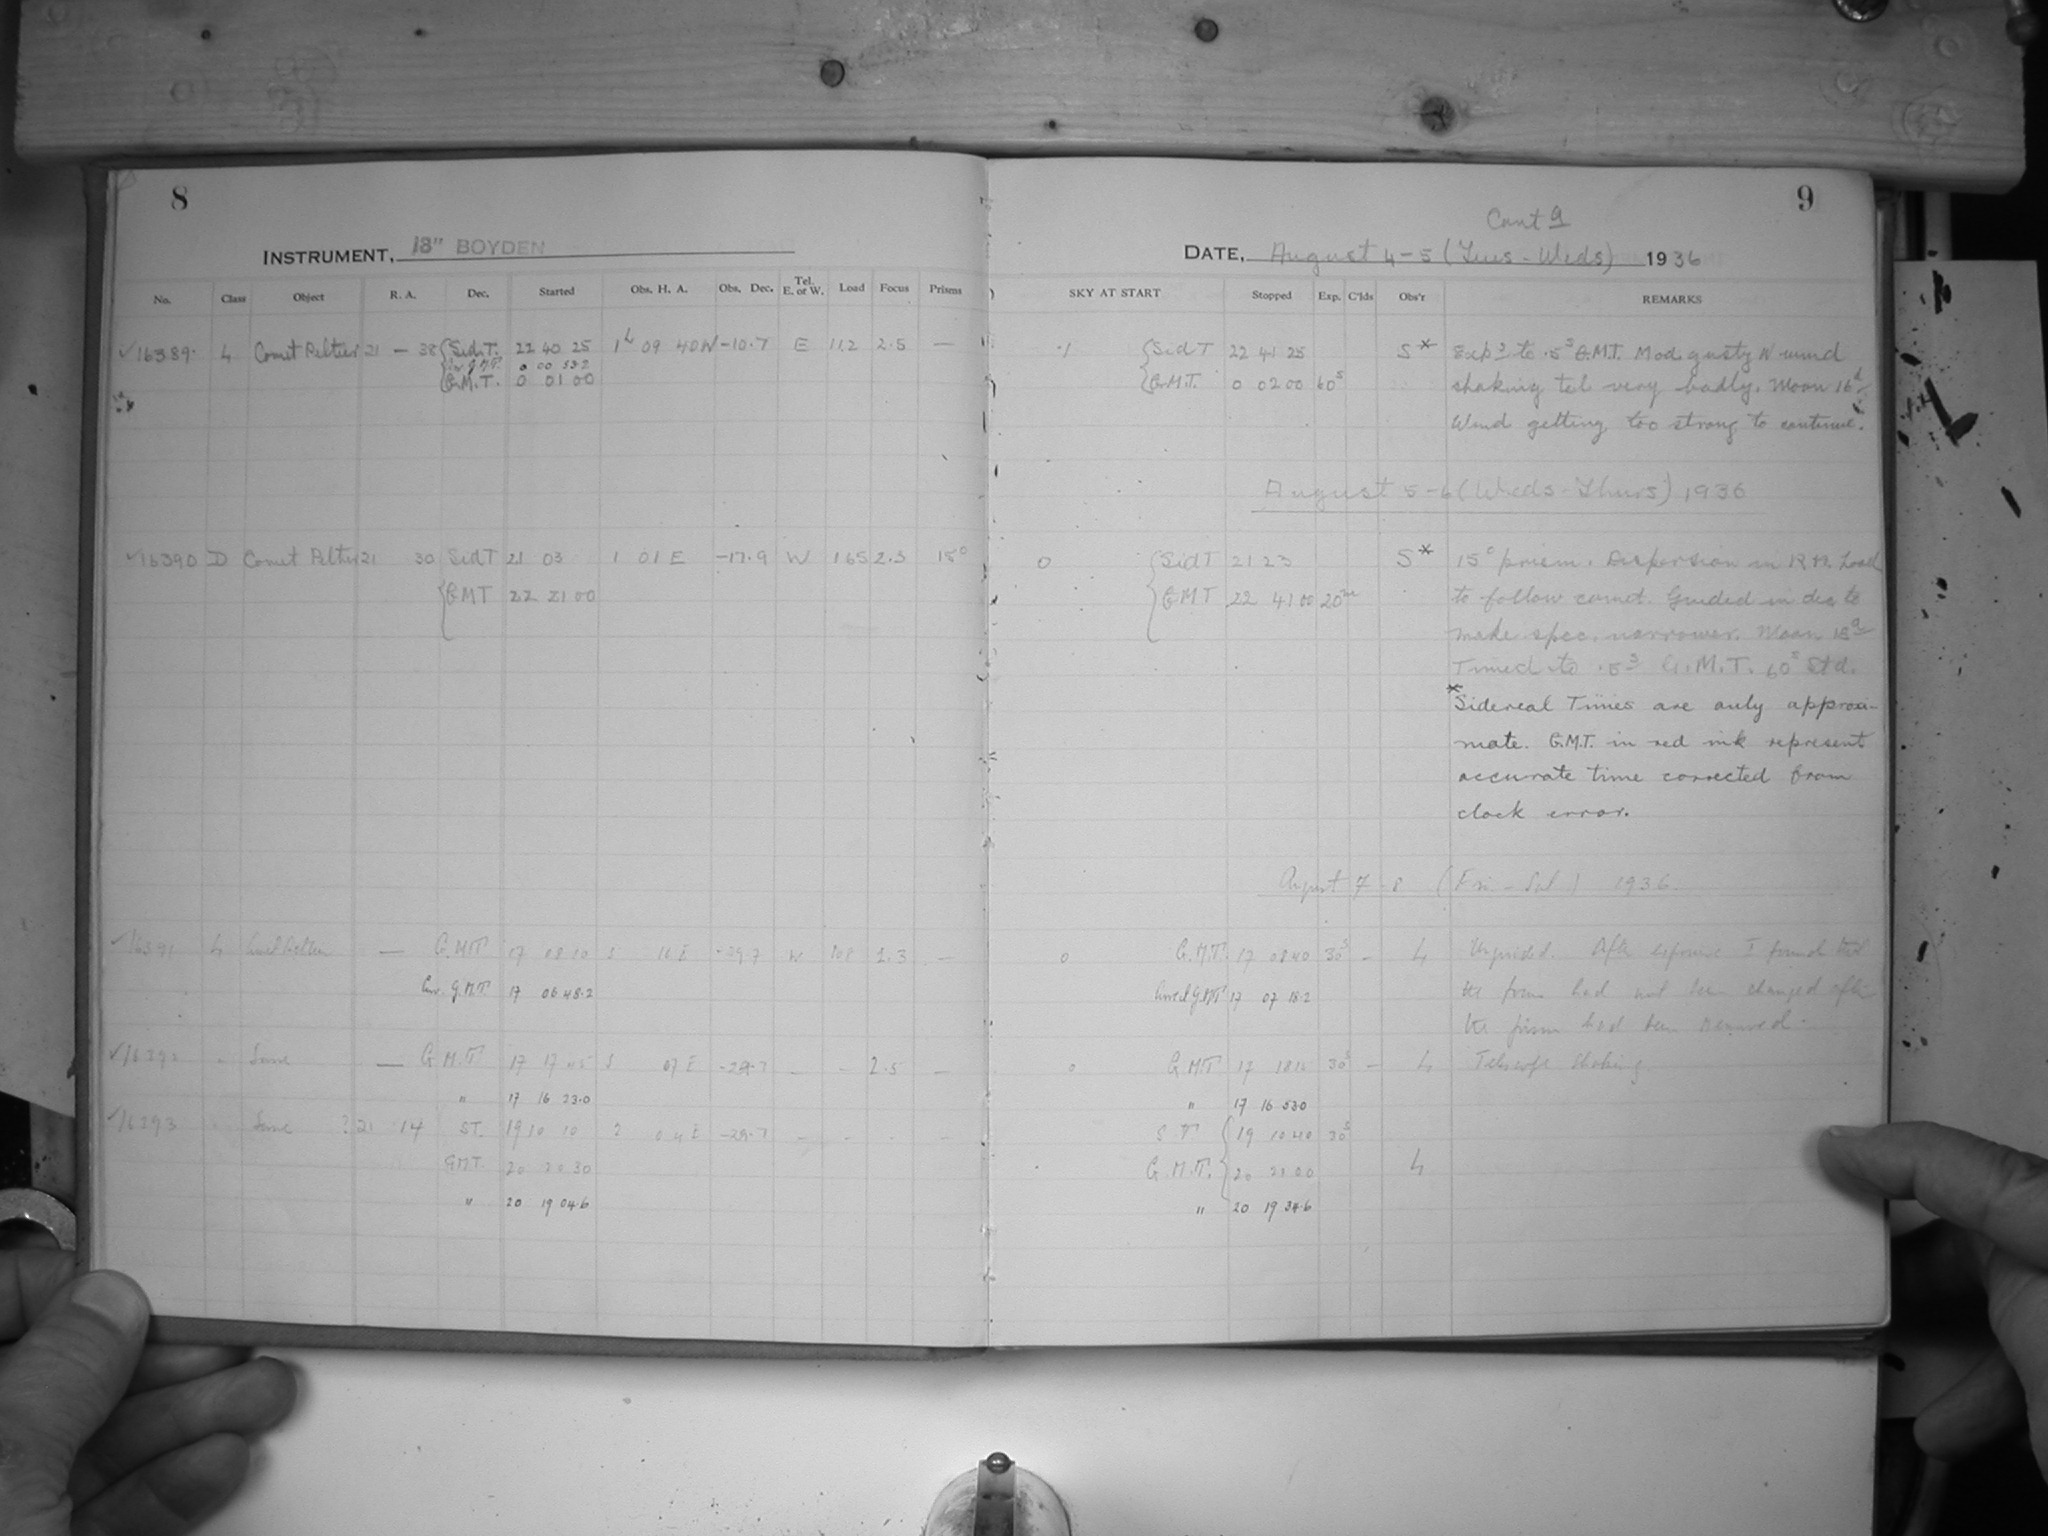 8
INSTRUMENT, 18" BOYDEN
No. Class Object R. A. Dec. Started Obs. H. A. Obs. Dec. Tel. E. or W. Load Focus Prisms
16389 L Comet Peltier 21 — 38 Sid T. 22 40 25 1h 09 40W -10.7 E 112 2.5 —
G.M.T. 0 00 53.2
G.M.T. 0 01 00
16390 D Comet Peltier 21 30 Sid T 21 03 1 01 E -17.9 W 165 2.3 15°
GMT 22 21 00
16391 L — G.M.T. 17 08 10 5 11 E -29.7 W 108 2.3 —
Corr. G.M.T. 17 06 48.2
16392 " Same — G.M.T. 17 17 45 5 07 E -29.7 - - 2.5 —
" 17 16 23.0
16393 " Same ? 21 14 ST. 19 10 10 2 04 E -29.7 - - - —
GMT. 20 20 30
" 20 19 04.6
9
Cont d
DATE, August 4-5 (Tues - Weds) 1936
SKY AT START Stopped Exp. C'lds Obs'r REMARKS
.1 Sid T 22 41 25 S* Exp d to .5s G.M.T. Mod gusty N wind
G.M.T. 0 02 00 60s shaking tel very badly. Moon 16d
Wind getting too strong to continue.
August 5-6 (Weds - Thurs) 1936
0 Sid T 21 23 S* 15° prism. Dispersion in R.A. Load
GMT 22 41 00 20m to follow comet. Guided in dec to
make spec. narrower. Moon
Timed to .5s G.M.T. 60s Std.
* Sidereal Times are only approxi-
mate. G.M.T. in red ink represent
accurate time corrected from
clock error.
August 7-8 (Fri - Sat) 1936
0 G.M.T. 17 08 40 30s - L Unguided. After exposure I found that
G.M.T. 17 07 18.2 the focus had not been changed after
the prism had been removed.
0 G.M.T 17 18 15 30s - L Telescope shaking
" 17 16 53.0
S.T. 19 10 40 30s
G.M.T. 20 21 00 L
" 20 19 34.6